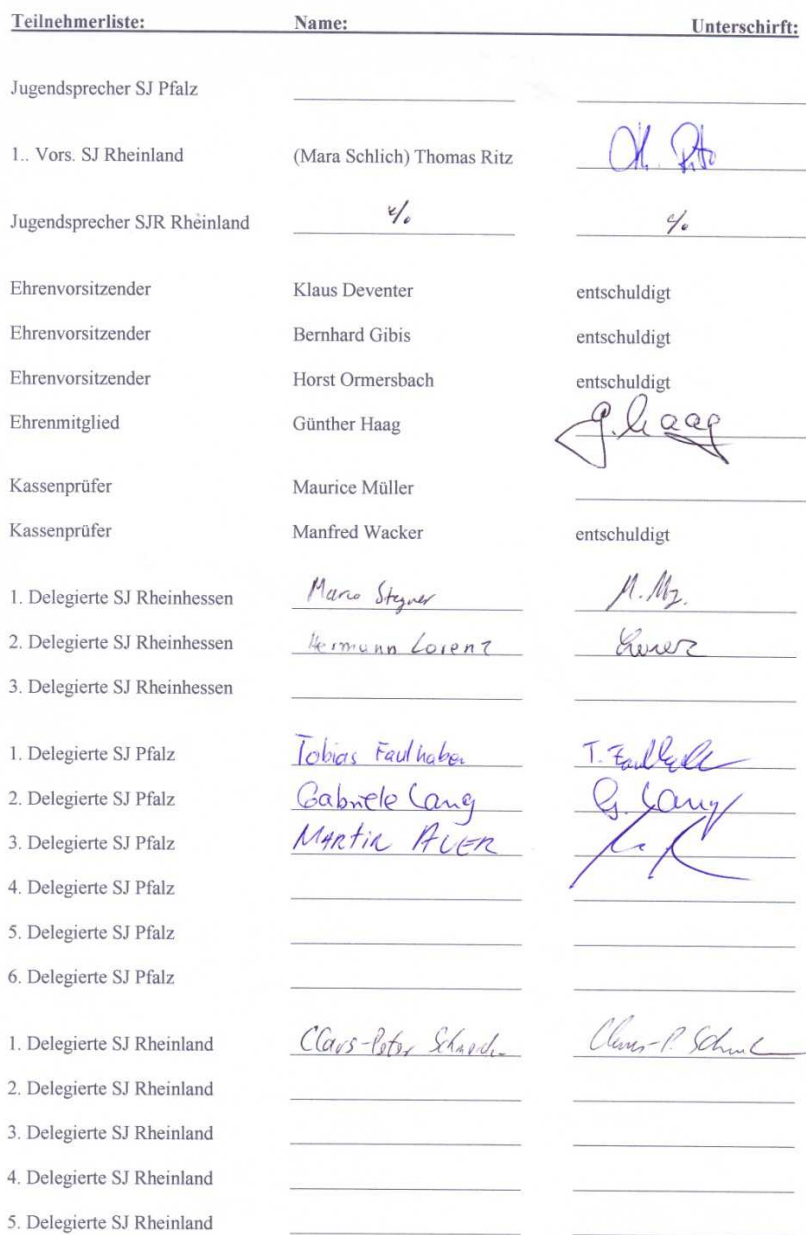 Teilnehmerliste: Name: Unterschirft:
Jugendsprecher SJ Pfalz
1.. Vors. SJ Rheinland (Mara Schlich) Thomas Ritz
Jugendsprecher SJR Rheinland
Ehrenvorsitzender Klaus Deventer entschuldigt
Ehrenvorsitzender Bernhard Gibis entschuldigt
Ehrenvorsitzender Horst Ormersbach entschuldigt
Ehrenmitglied Günther Haag G. Haag
Kassenprüfer Maurice Müller
Kassenprüfer Manfred Wacker entschuldigt
1. Delegierte SJ Rheinhessen Marco
2. Delegierte SJ Rheinhessen Hermann Lorenz Lorenz
3. Delegierte SJ Rheinhessen
1. Delegierte SJ Pfalz Tobias Faulhaber T.
2. Delegierte SJ Pfalz Gabriele Lang G. Lang
3. Delegierte SJ Pfalz Martin AUER
4. Delegierte SJ Pfalz
5. Delegierte SJ Pfalz
6. Delegierte SJ Pfalz
1. Delegierte SJ Rheinland Claus-Peter
2. Delegierte SJ Rheinland
3. Delegierte SJ Rheinland
4. Delegierte SJ Rheinland
5. Delegierte SJ Rheinland